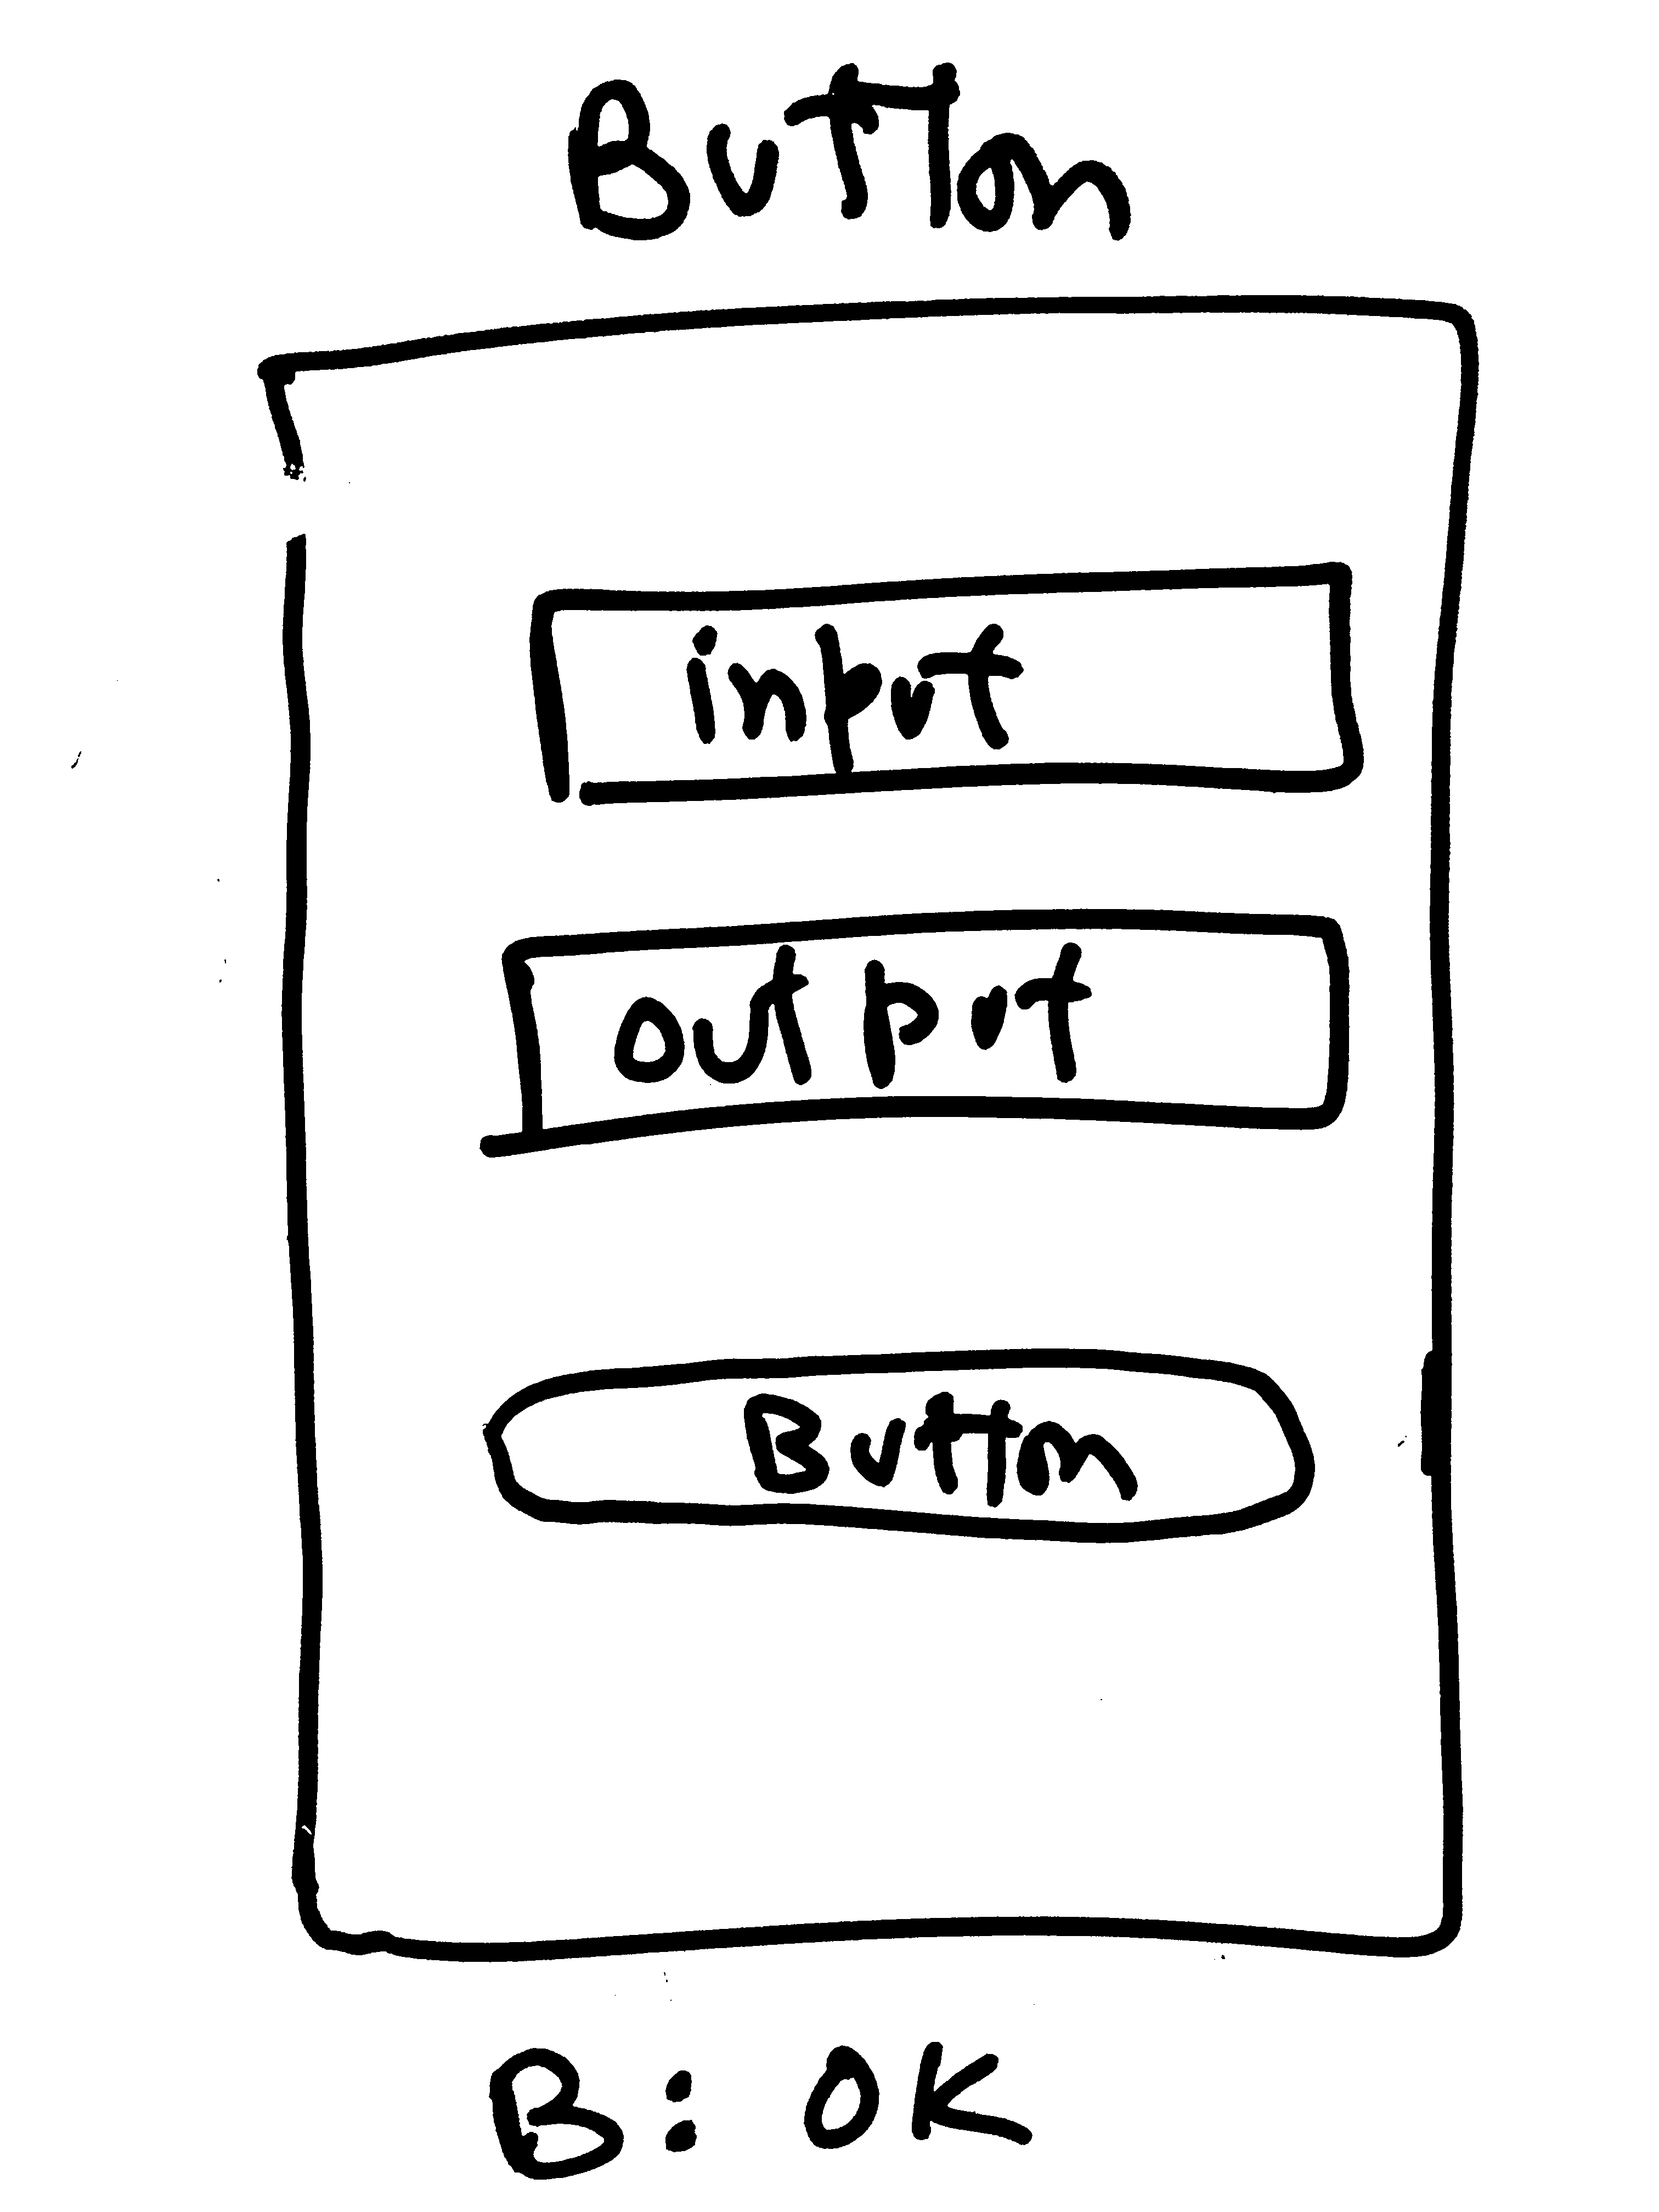 Button
input
output
Button
B: OK